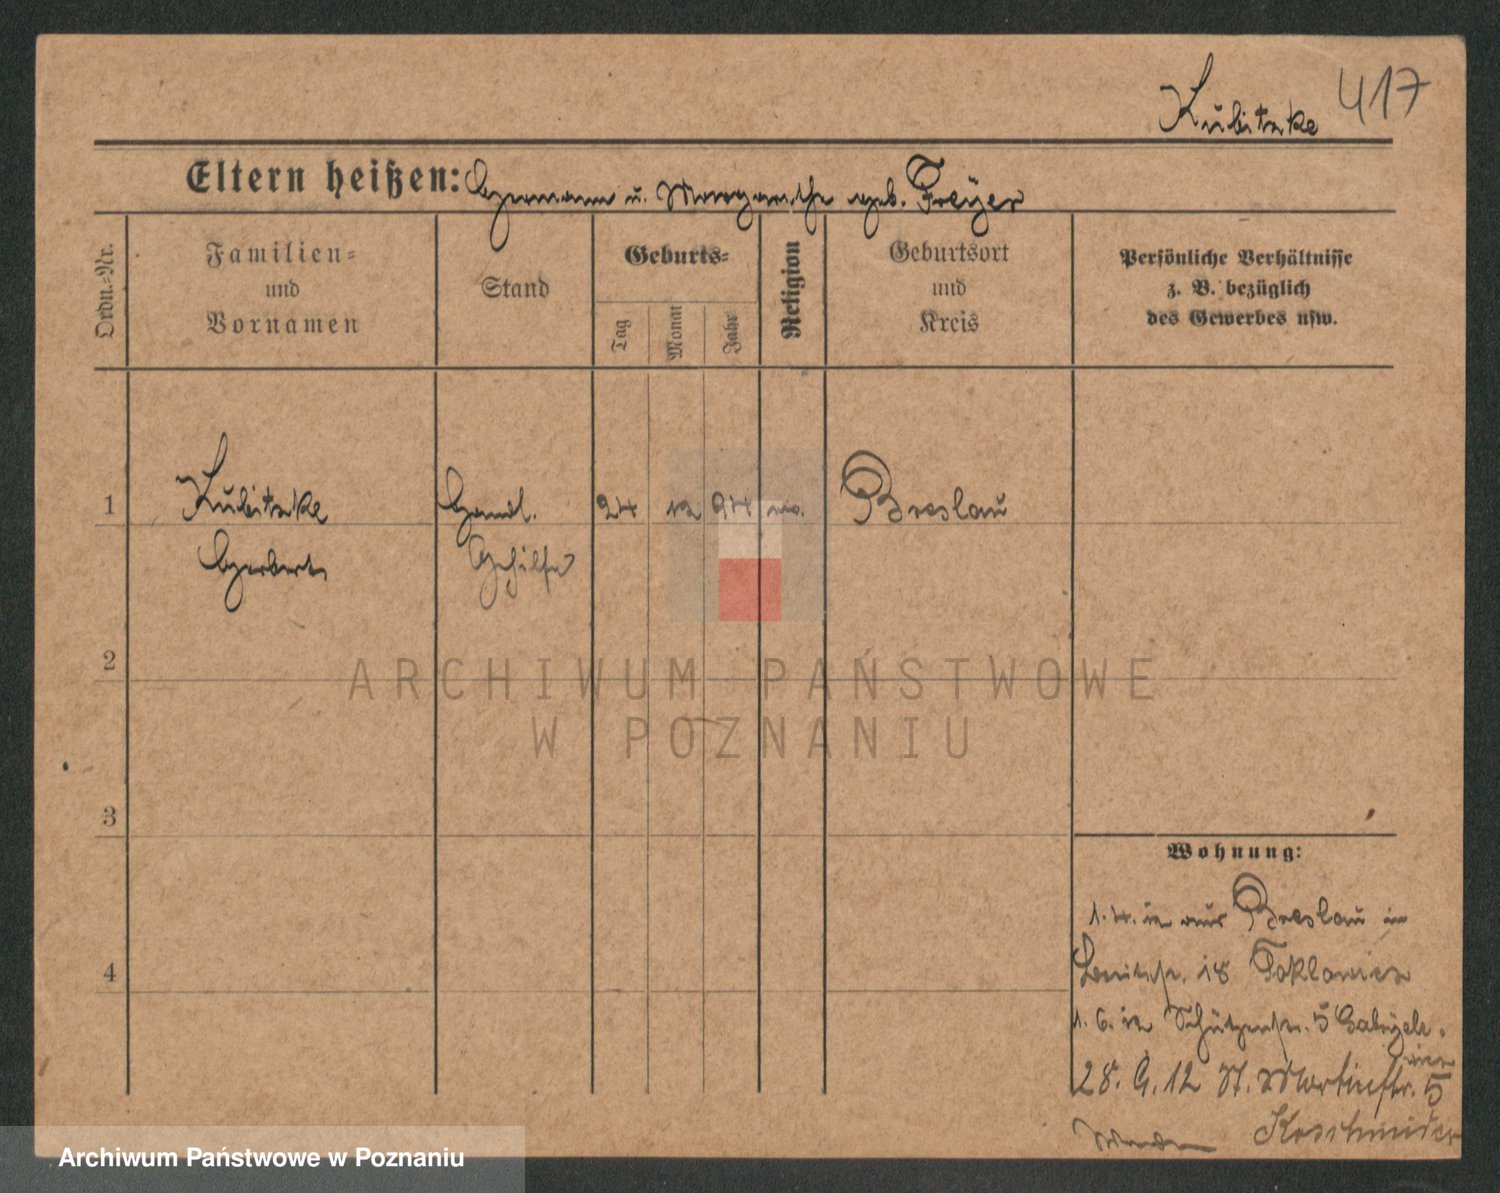 Kubitzke 417
Eltern heißen: Hermann u. Margarethe geb. Freyer
Ordn.-Nr.
Familien-
und
Vornamen
Stand
Geburts-
Tag
Monat
Jahr
Religion
Geburtsort
und
Kreis
Persönliche Verhältnisse
z. B. bezüglich
des Gewerbes usw.
1 Kubitzke Handl. 24 12 94 Breslau
Herbert Gehilfe
2
3
4
Wohnung:
1. 4. 12 aus Breslau in
18
1. 6. 12 Schützenstr. 5
28. 9. 12 St. Martinstr. 5
Koschmider
ARCHIWUM PAŃSTWOWE
W POZNANIU
Archiwum Państwowe w Poznaniu